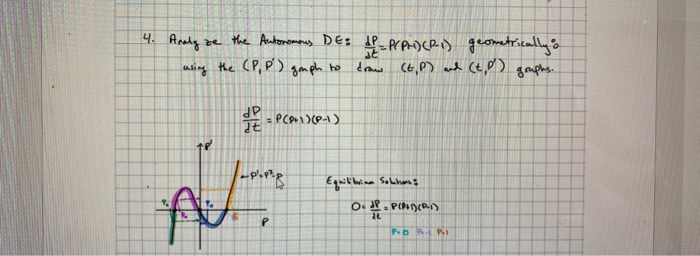 4. Analyze the Autonomous DE: dP/dt = P(P+1)(P-1) geometrically:
using the (P, P') graph to draw (t,P) and (t,P') graphs.
dP/dt = P(P+1)(P-1)
P'
P'=P³-P
Equilibrium Solutions:
P₀ P₀
P₀
0= dP/dt = P(P+1)(P-1)
P
P=0 P=-1 P=1